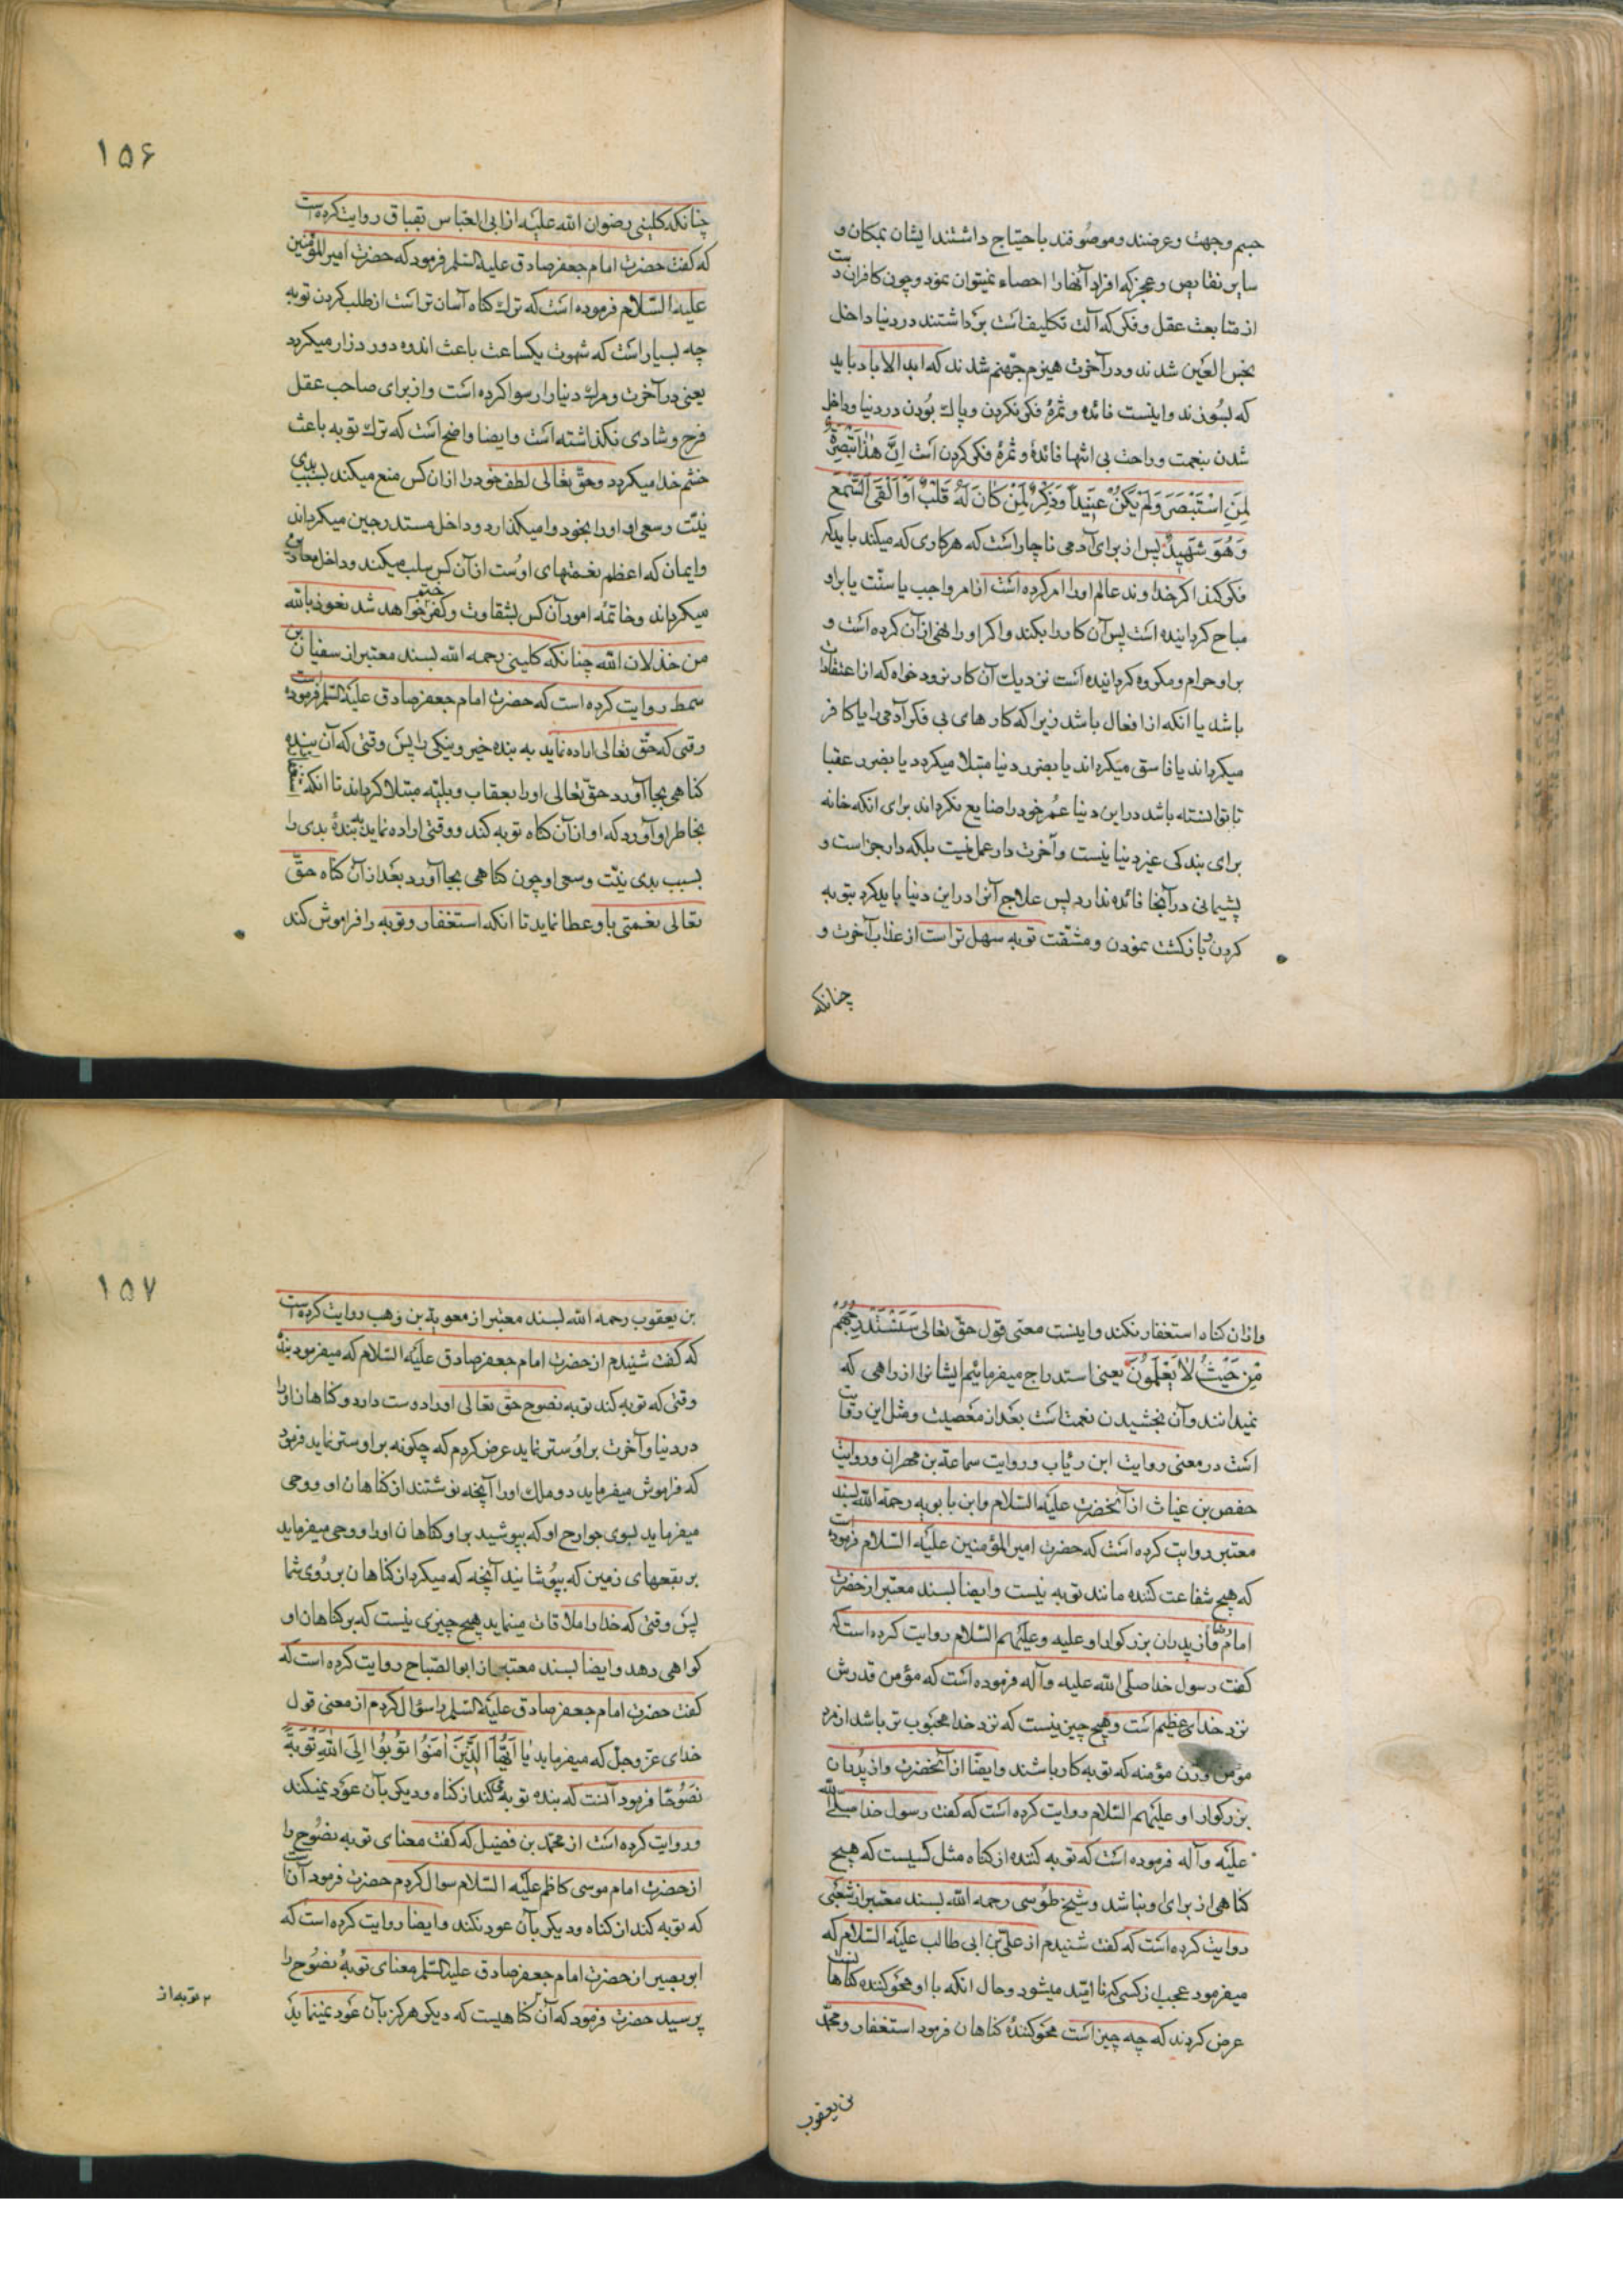 جسم و جهت و عرضند و موصوفند باحتیاج داشتند ایشان بمکان و
سایر نقایص و عجز که افراد آنها را احصاء نمیتوان نمود و چون کافران دست
از متابعت عقل و فکر که آلت تکلیف است برداشتند در دنیا داخل
نجس العین شدند و در آخرت هیزم جهنم شدند که ابد الاباد باید
که بسوزند و اینست فائده و ثمرهٔ فکر نکردن و پاک بودن در دنیا و داخل
شدن بنعمت و راحت بی انتها فائدهٔ و ثمرهٔ فکر کردن است اِنَّ هٰذا تَبْصِرَةٌ
لِمَنِ اسْتَبْصَرَ وَلَمْ یَکُنْ عَنِیداً وَذِکْرٌ لِمَنْ کَانَ لَهُ قَلْبٌ اَوْ اَلْقَی السَّمْعَ
وَهُوَ شَهِیدٌ پس از برای آدمی ناچار است که هر کاری که میکند باید که
فکر کند اکر خداوند عالم او را امر کرده است از امر واجب یا سنّت یا براو
مباح کردانیده است پس آن کار را بکند و اکر او را نهی از آن کرده است و
براو حرام و مکروه کردانیده است نزدیک آن کار نرود خواه که از اعتقادات
باشد یا انکه از افعال باشد زیرا که کارهای بی فکر آدمی را یا کافر
میکرداند یا فاسق میکرداند یا بضرر دنیا مبتلا میکردد یا بضرر عقبا
تا توانسته باشد در این دنیا عمر خود را ضایع نکرداند برای انکه خانه
برای بندکی غیر دنیا نیست و آخرت دار عمل نیست بلکه دار جزاست و
پشیمانی در آنجا فائده ندارد پس علاج آنرا در این دنیا باید کرد بتوبه
کردن و بازکشت نمودن و مشقت توبه سهل تر است از عذاب آخرت و
چنانکه
۱۵۶
چنانکه کلینی رضوان الله علیه از ابی العباس بقباق روایت کرده است
که کفت حضرت امام جعفر صادق علیه السّلم فرمود که حضرت امیر المؤمنین
علیه السّلام فرموده است که ترک کناه آسان تر است از طلب کردن توبه
چه بسیار است که شهوت یکساعت باعث اندوه دور دراز میکردد
یعنی در آخرت و مرک دنیا را رسوا کرده است و از برای صاحب عقل
فرح و شادی نکذاشته است و ایضا واضح است که ترک توبه باعث
خشم خدا میکردد و حق تعالی لطف خود را از ان کس منع میکند بسبب بدی
نیّت و سعی او او را بخود وامیکذارد و داخل مستدرجین میکرداند
و ایمان که اعظم نعمتهای اوست از آن کس سلب میکند و داخل
میکرداند و خاتمه امور آن کس بشقاوت و کفر ختم خواهد شد نعوذ بالله
من خذلان الله چنانکه کلینی رحمه الله بسند معتبر از سفیان بن
سمط روایت کرده است که حضرت امام جعفر صادق علیه السّلم فرموده است
وقتی که حقّ تعالی اراده نماید به بنده خیر و نیکی را پس وقتی که آن بنده
کناهی بجا آورد حقّ تعالی او را بعقاب و بلیّه مبتلا کرداند تا انکه
بخاطر او آورد که او از آن کناه توبه کند و وقتی اراده نماید به بندهٔ بدی را
بسبب بدی نیّت و سعی او چون کناهی بجا آورد بعد از آن کناه حقّ
تعالی نعمتی باو عطا نماید تا انکه استغفار و توبه را فراموش کند
و از ان کناه استغفار نکند و اینست معنی قول حق تعالی سَنَسْتَدْرِجُهُمْ
مِنْ حَیْثُ لاٰ یَعْلَمُونَ یعنی استدراج میفرمائیم ایشانرا از راهی که
نمیدانند و آن بخشیدن نعمت است بعد از معصیت و مثل این روایت
است در معنی روایت ابن رئاب و روایت سماعة بن مهران و روایت
حفص بن غیاث از آنحضرت علیه السّلام و ابن بابویه رحمه الله بسند
معتبر روایت کرده است که حضرت امیر المؤمنین علیه السّلام فرموده است
که هیچ شفاعت کننده مانند توبه نیست و ایضا بسند معتبر از حضرت
امام رضا و از پدران بزرکوار او علیه و علیهم السّلام روایت کرده است که
کفت رسول خدا صلّی الله علیه و آله فرموده است که مؤمن قدرش
نزد خدای عظیم است و هیچ چیز نیست که نزد خدا محبوب تر باشد از مرد
مؤمن و زن مؤمنه که توبه کار باشند و ایضا از آنحضرت و از پدران
بزرکوار او علیهم السّلام روایت کرده است که کفت رسول خدا صلّی الله
علیه و آله فرموده است که توبه کننده از کناه مثل کسیست که هیچ
کناهی از برای او نباشد و شیخ طوسی رحمه الله بسند معتبر از شعبی
روایت کرده است که کفت شنیدم از علی بن ابی طالب علیه السّلام که
میفرمود عجب از کسی که ناامّید میشود و حال انکه با او محو کننده کناها است
عرض کردند که چه چیز است محو کنندهٔ کناهان فرمود استغفار و محمّد
بن یعقوب
۱۵۷
بن یعقوب رحمه الله بسند معتبر از معویة بن وهب روایت کرده است
که کفت شنیدم از حضرت امام جعفر صادق علیه السّلام که میفرمود بنده
وقتی که توبه کند توبه نصوح حق تعالی او را دوست دارد و کناهان او را
در دنیا و آخرت براو ستر نماید عرض کردم که چکونه براو ستر نماید فرمود
که فراموش میفرماید دو ملک او را آنچه نوشتند از کناهان او و وحی
میفرماید بسوی جوارح او که بپوشید براو کناهان او را و وحی میفرماید
بر بقعهای زمین که بپوشانید آنچه که میکرد از کناهان بر روی شما
پس وقتی که خدا را ملاقات مینماید هیچ چیزی نیست که بر کناهان او
کواهی دهد و ایضا بسند معتبر از ابو الصّباح روایت کرده است که
کفت حضرت امام جعفر صادق علیه السّلم را سؤال کردم از معنی قول
خدای عزّ و جلّ که میفرماید یٰا اَیُّهَا الَّذِینَ اٰمَنُوا تُوبُوا اِلَی اللهِ تَوْبَةً
نَصُوحًا فرمود آنست که بنده توبه کند از کناه و دیکر بآن عود نمیکند
و روایت کرده است از محمّد بن فضیل که کفت معنای توبه نصوح را
از حضرت امام موسی کاظم علیه السّلام سوال کردم حضرت فرمود آن است
که توبه کند از کناه و دیکر بآن عود نکند و ایضا روایت کرده است که
ابو بصیر از حضرت امام جعفر صادق علیه السّلم معنای توبهٔ نصوح را
پرسید حضرت فرمود که آن کناهیست که دیکر هرکز بآن عود نمینماید
۲ توبه از